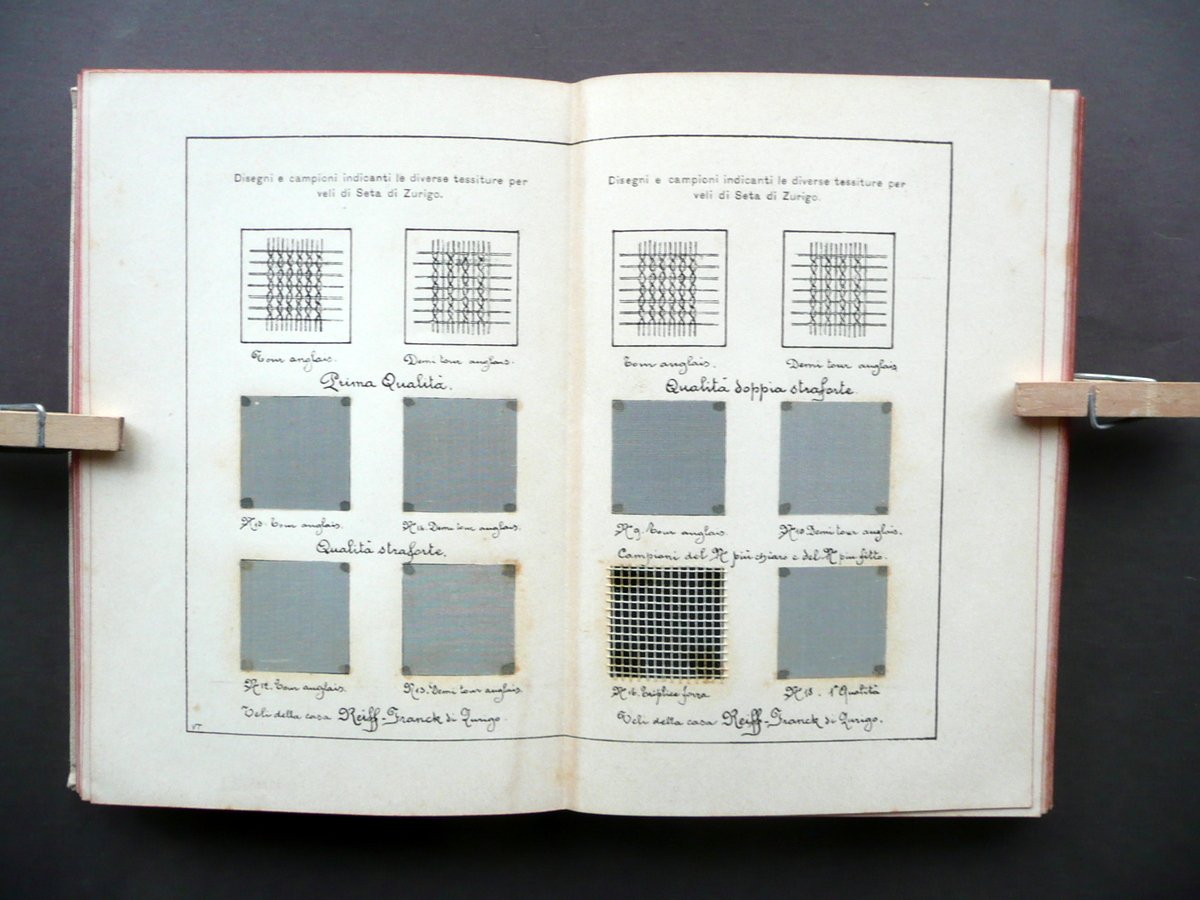 Disegni e campioni indicanti le diverse tessiture per
veli di Seta di Zurigo.
Tour anglais. Demi tour anglais.
Prima Qualità.
Tour anglais. Demi tour anglais.
Qualità straforte.
Tour anglais. Nº13. Demi tour anglais.
Veli della casa Reiff-Franck di Zurigo.
VT
Disegni e campioni indicanti le diverse tessiture per
veli di Seta di Zurigo.
Tour anglais. Demi tour anglais
Qualità doppia straforte.
Nº9. Tour anglais. Nº10. Demi tour anglais.
Campioni del Nº più chiaro e del Nº più fitto.
Nº16. Triplice forza Nº18. 1ª Qualità
Veli della casa Reiff-Franck di Zurigo.